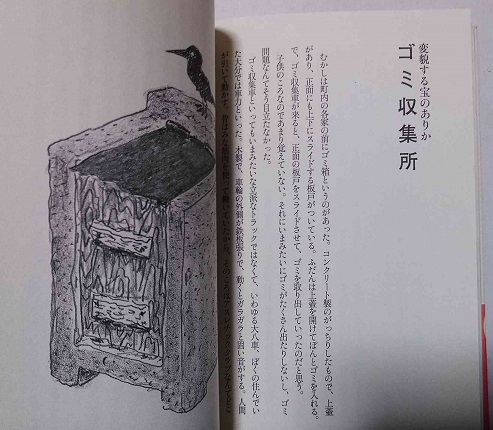 変貌する宝のありか
ゴミ収集所
むかしは町内の各家の前にゴミ箱というのがあった。コンクリート製のがっちりしたもので、上蓋
があり、正面にも上下にスライドする板戸がついている。ふだんは上蓋を開けてぽんとゴミを入れる。
で、ゴミ収集車が来ると、正面の板戸をスライドさせて、ゴミを取り出していったのだと思う。
子供のころなのであまり覚えていない。それにいまみたいにゴミがたくさん出たりしないし、ゴミ
問題なんてそう目立たなかった。
ゴミ収集車といってもいまみたいな立派なトラックではなくて、いわゆる大八車、ぼくの住んでい
た大分では車力といった。木製で、車輪の外側が鉄板張りで、動くとガラガラと固い音がする。人間
が引いて動かす。